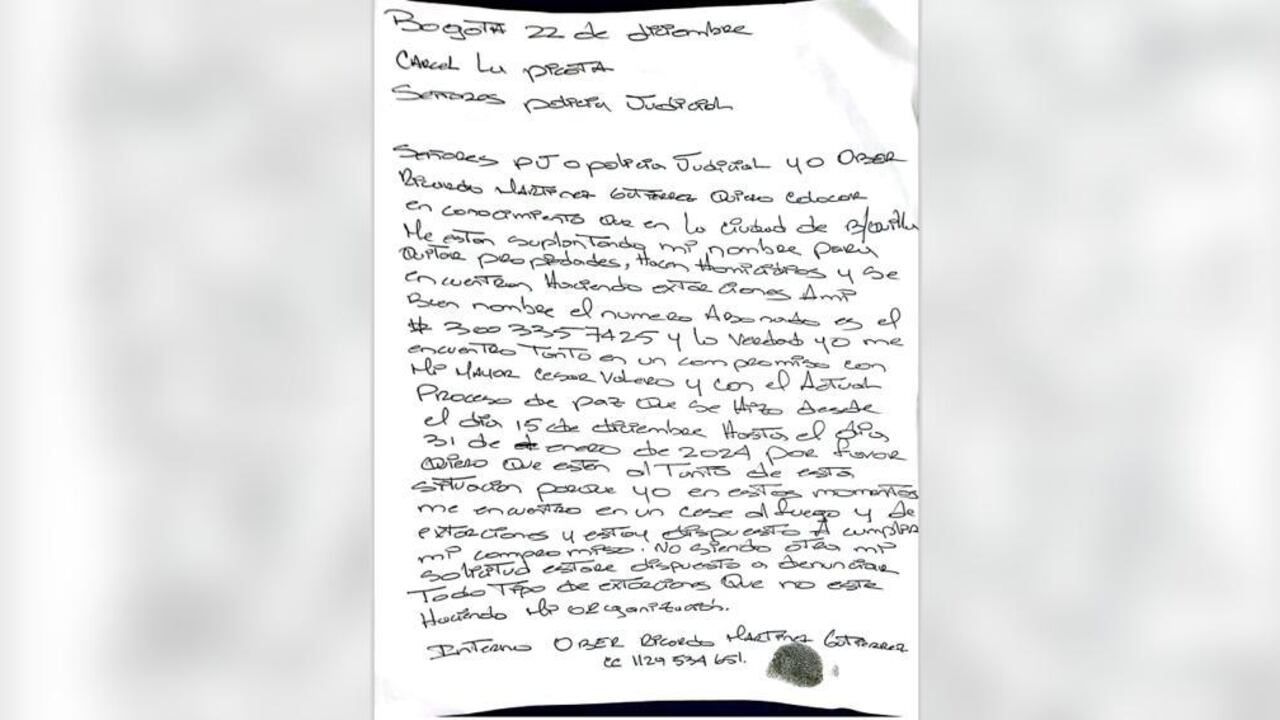 Bogota 22 de diciembre
Carcel La picota
Señores policia Judicial
Señores PJ o policia Judicial yo OBER
Ricardo Martinez Gutierrez Quiero colocar
en conocimiento que en la ciudad de B/quilla
Me estan suplantando mi nombre para
Quitar propiedades, Hacen Homicidios y se
encuentran Haciendo extorciones A mi
Buen nombre el numero Abonado es el
# 300 335 7425 y la verdad yo me
encuentro Tanto en un compromiso con
Mi Mayor Cesar Valero y con el Actual
Proceso de paz que se Hizo desde
el dia 15 de diciembre Hasta el dia
31 de enero de 2024 por favor
Quiero Que esten al Tanto de esta
situacion porque yo en estos momentos
me encuentro en un cese al fuego y de
extorciones y estoy dispuesto A cumplir
mi compromiso. No siendo otra mi
solicitud estare dispuesto a denunciar
Todo Tipo de extorcions Que no este
Haciendo Mi Organización.
Interno OBER Ricardo Martinez Gutierrez
cc 1129 534 651.